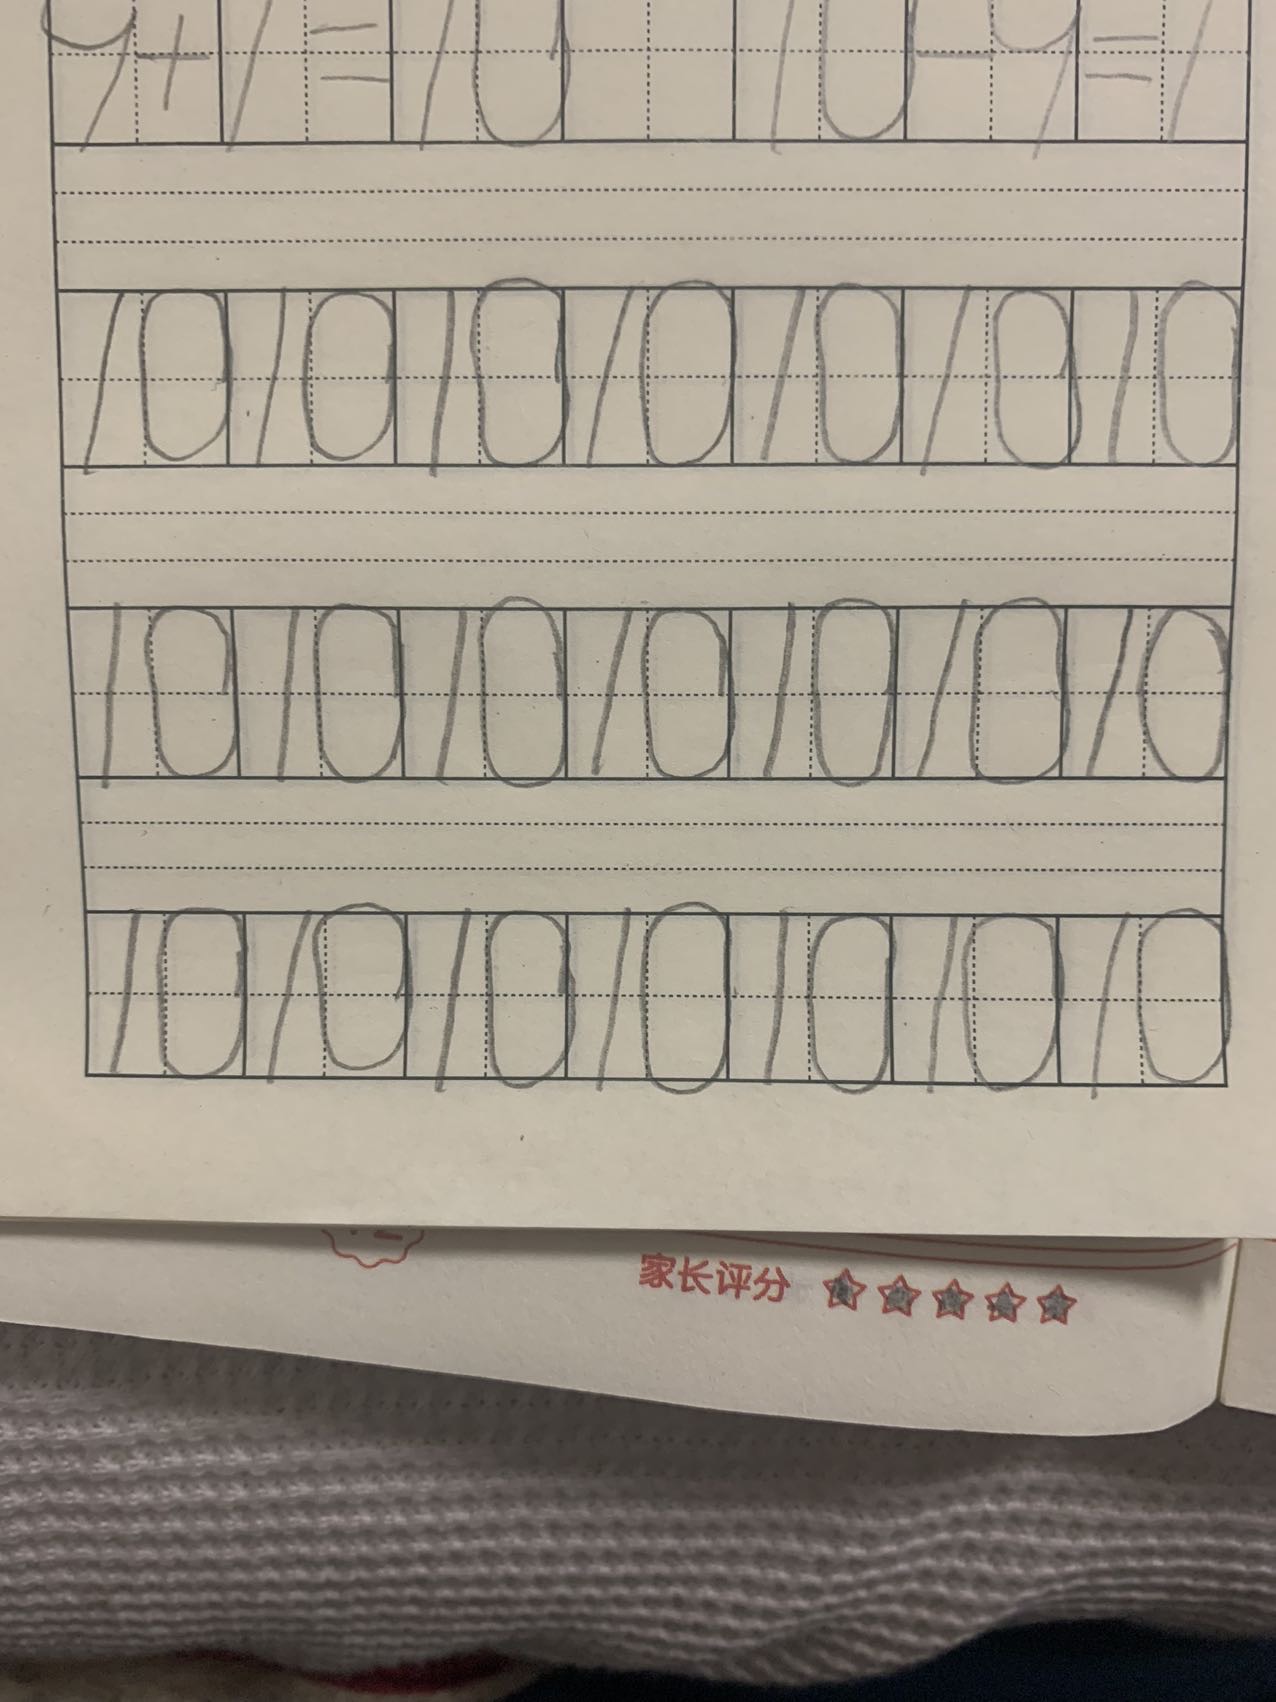 9+1=10 10-9=1
10 10 10 10 10 10 10
10 10 10 10 10 10 10
10 10 10 10 10 10 10
家长评分